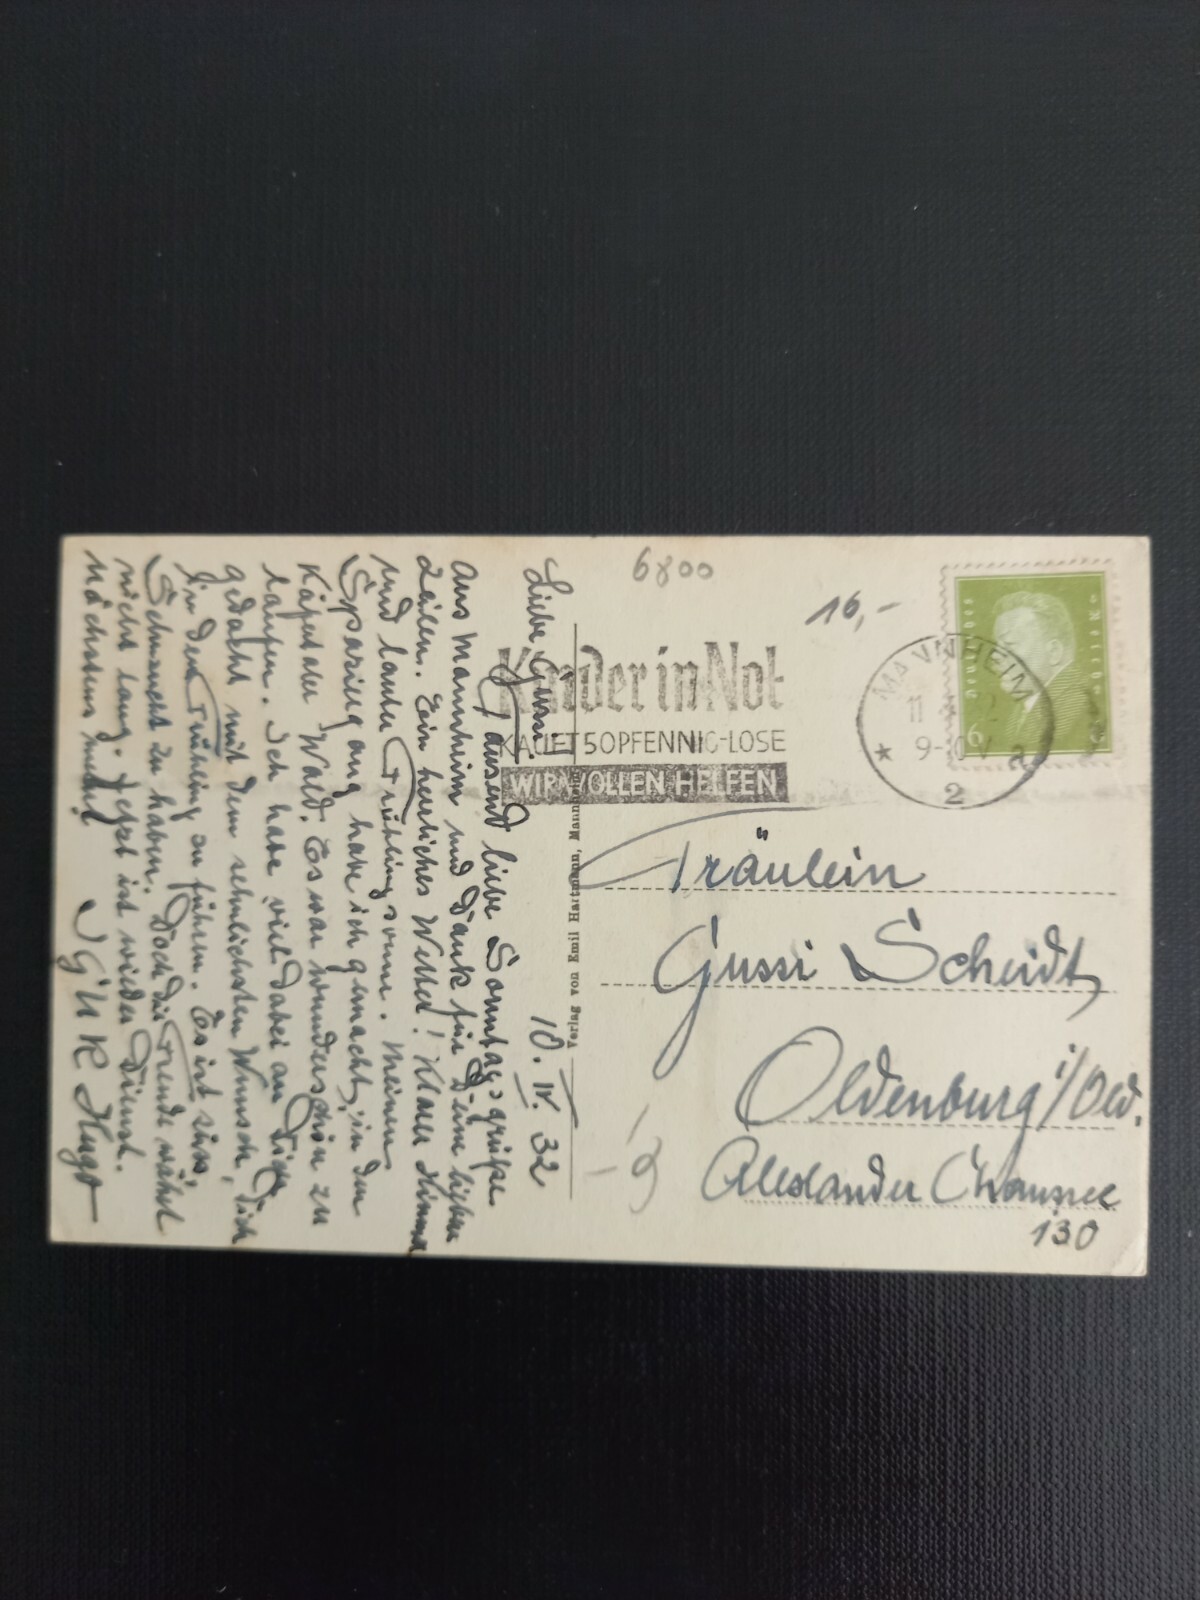 10. IV. 32
Liebe Gussi!
Tausend liebe Sonntagsgrüße
aus Mannheim und Dank für Deine lieben
Zeilen. Ein herrliches Wetter! Klarer Himmel
und lauter Frühlingssonne. Meinen
Spaziergang habe ich gemacht, in den
Käfertaler Wald. Es war wunderschön zu
laufen. Ich habe viel dabei an Dich
gedacht mit dem sehnlichsten Wunsch, Dich
in den Frühling zu führen. Es ist süss,
Sehnsucht zu haben. Doch die Freude währt
nicht lang. Jetzt ist wieder Dienst.
Nächstens mehr!
G. u. K. Hugo
Verlag von Emil Hartmann, Mann
6800
16,-
Kinder in Not
KAUFT 50PFENNIG-LOSE
WIR WOLLEN HELFEN
MANNHEIM
11
9-10 V
a
2
6
Fräulein
Gussi Scheidt
Oldenburg i/Old.
Alexander Chaussee
130